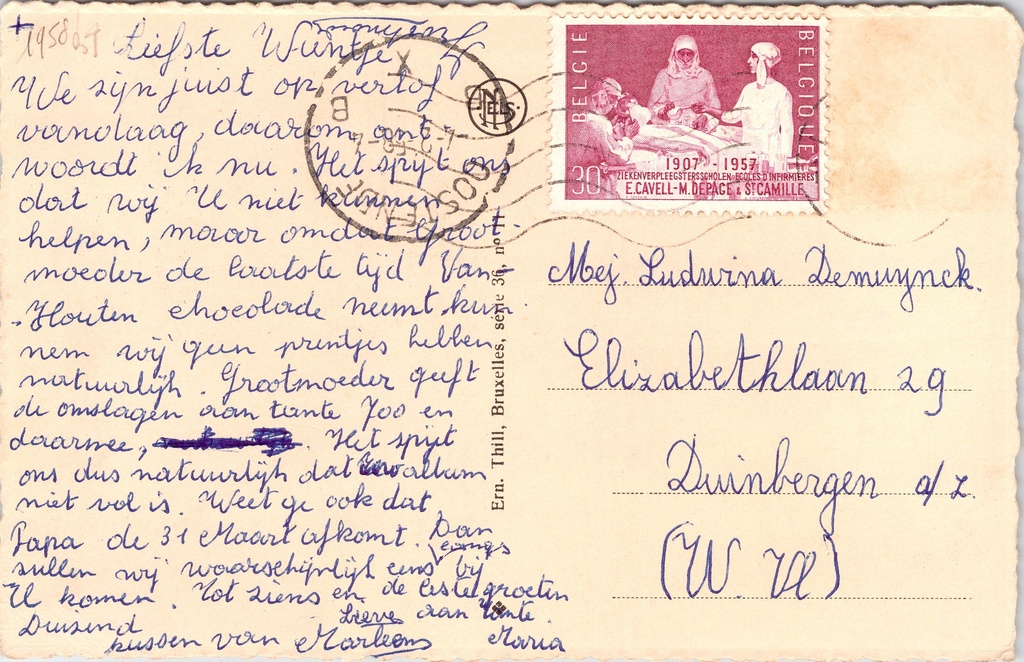 1958
Liefste Wuntje
We zijn juist op verlof
vandaag, daarom ant-
woordt ik nu. Het spijt ons
dat wij U niet kunnen
helpen, maar omdat Groot-
moeder de laatste tijd Van-
-Houten chocolade neemt kun-
nem wij geen prentjes hebben
natuurlijk. Grootmoeder geeft
de omslagen aan tante Joo en
daarmee, . Het spijt
ons dus natuurlijk dat uw album
niet vol is. Weet ge ook dat
Papa de 31 Maart afkomt. Dan
zullen wij waarschijnlijk eens bij
U komen. Tot ziens en de beste groeten
aan Tante
Maria
Duizend
kussen van Lieve
Marleen
OOSTENDE
X
B
NELS
BELGIE
BELGIQUE
1907 - 1957
ZIEKENVERPLEEGSTERSSCHOLEN-ECOLES D'INFIRMIERES
30c E.CAVELL-M.DEPAGE & ST CAMILLE
Ern. Thill, Bruxelles, série 36, n°
Mej. Ludwina Demuynck.
Elizabethlaan 29
Duinbergen a/z.
(W. Vl)